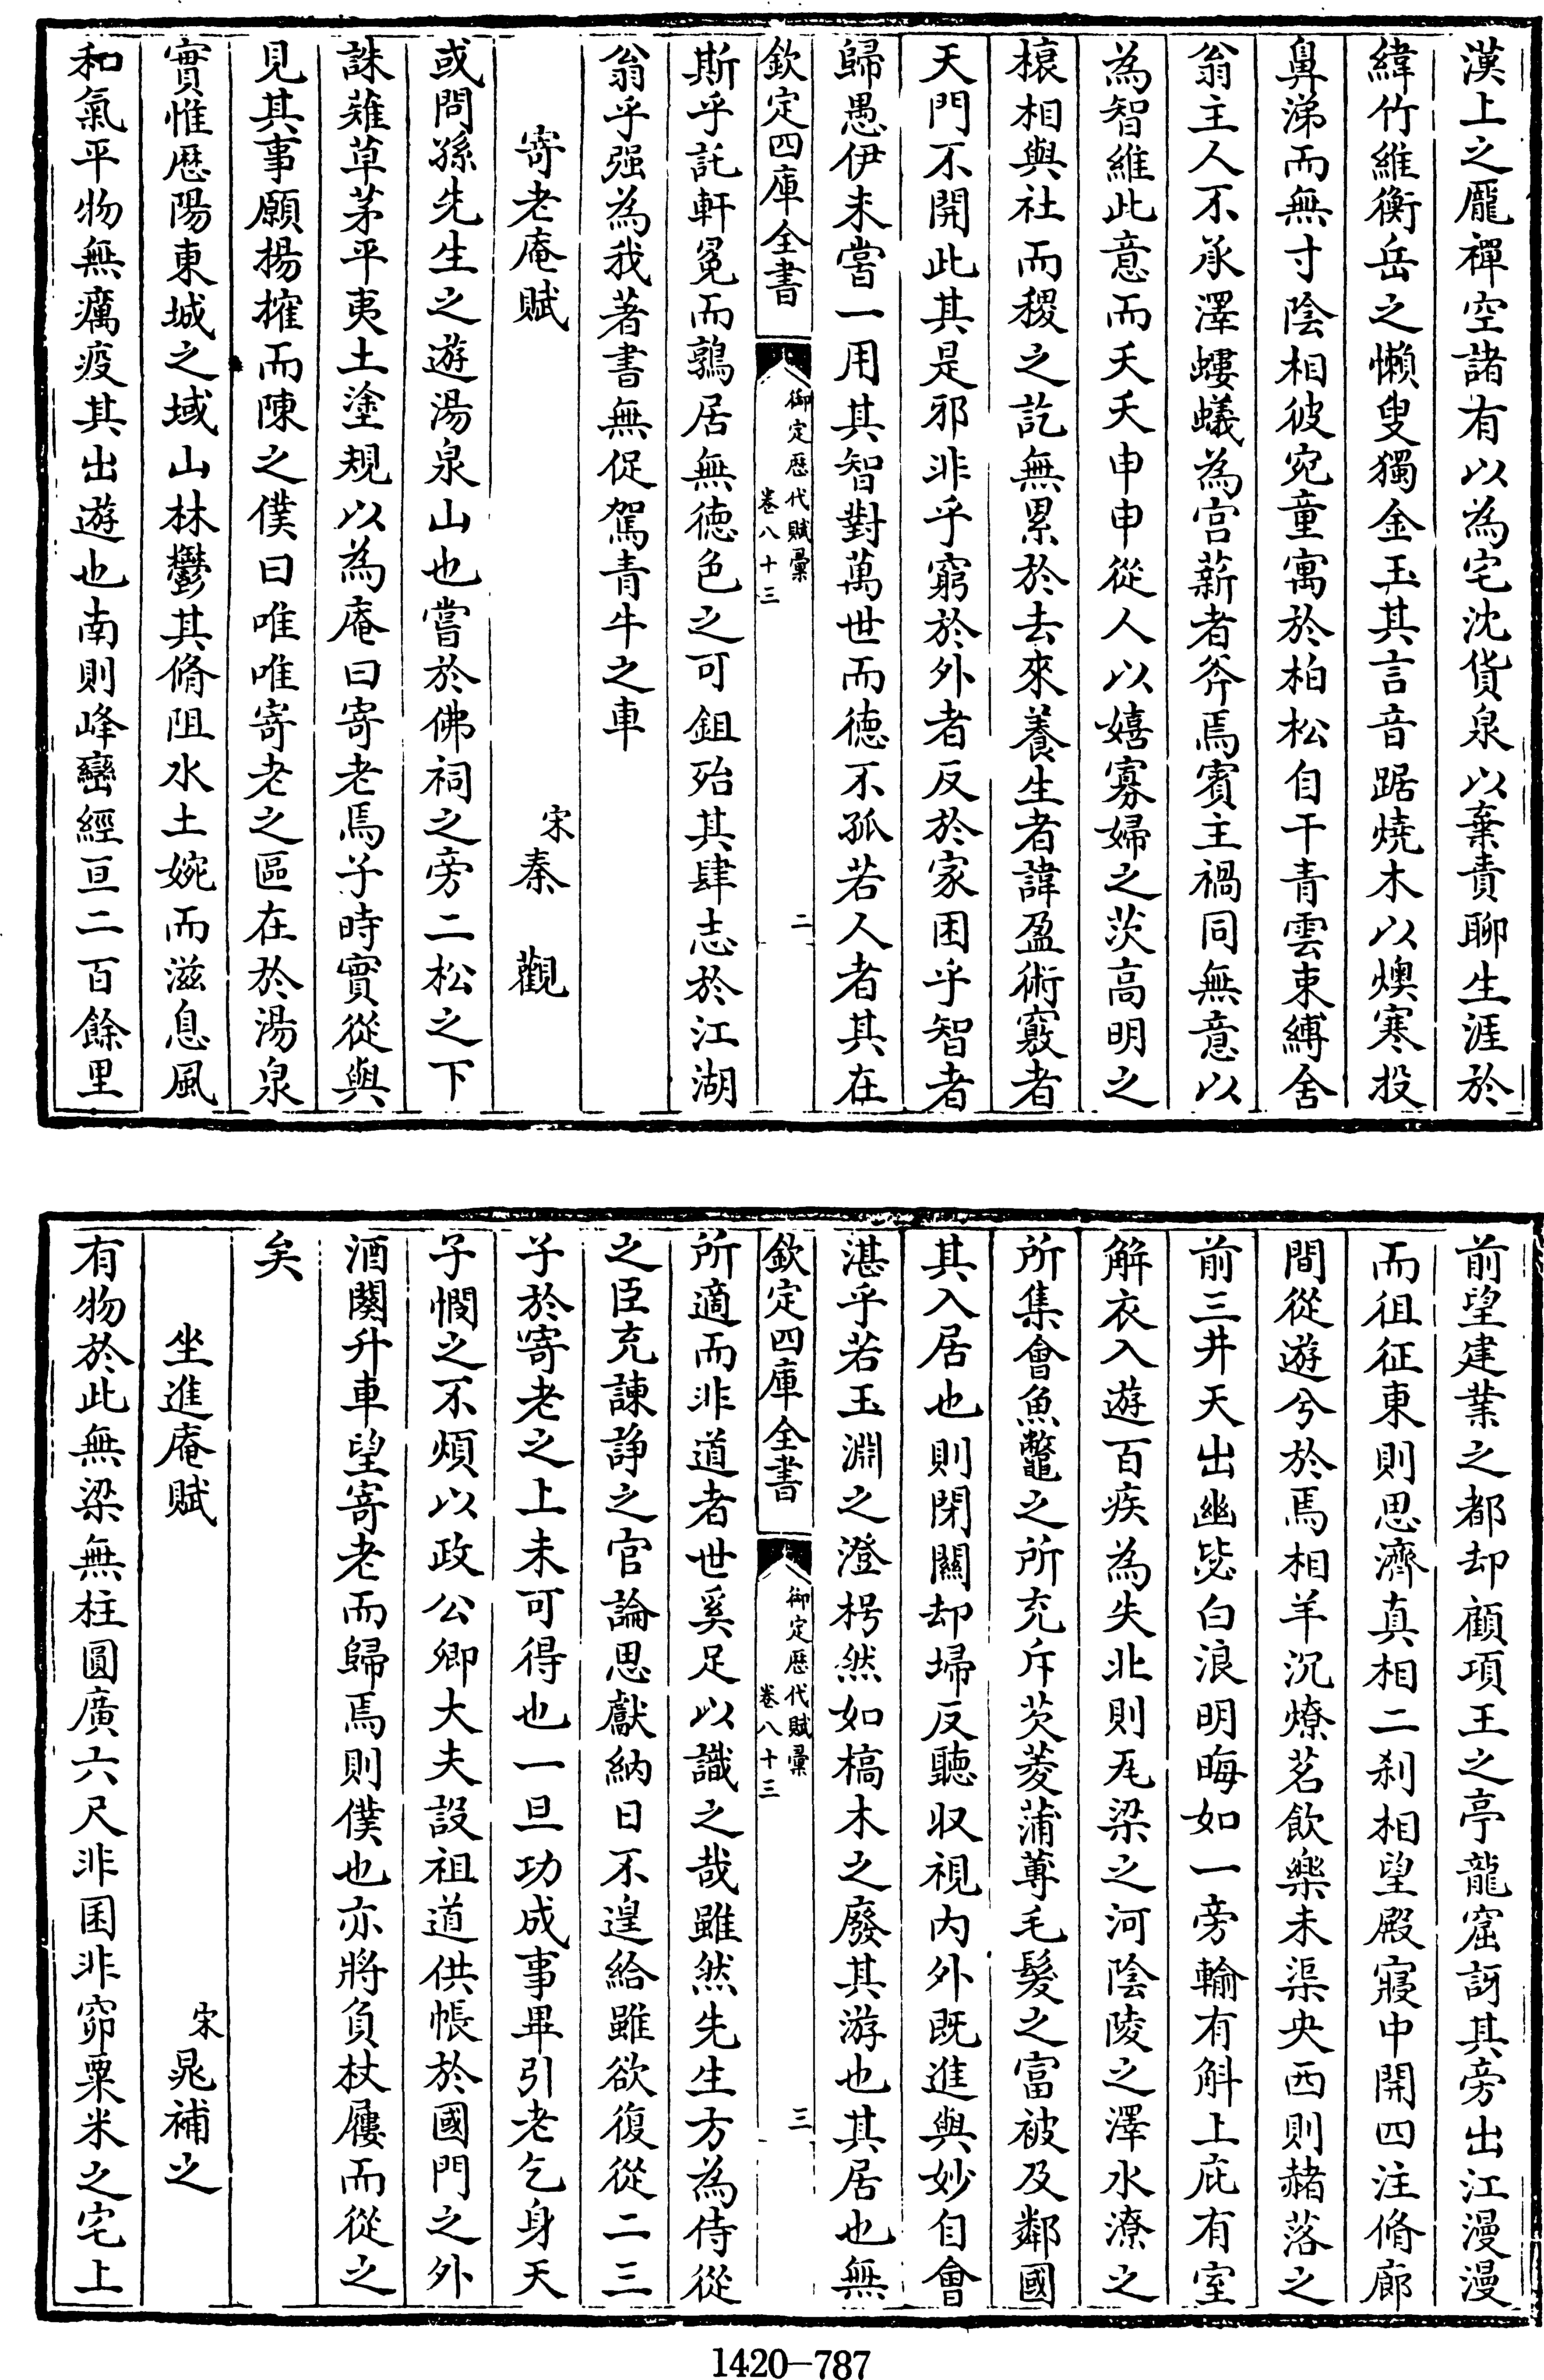 漢上之龎禪空諸有以為宅沈貨泉以棄責聊生涯於
緯竹維衡岳之懶叟獨金玉其言音踞燒木以燠寒投
鼻涕而無寸陰相彼宛童寓於柏松自干青雲束縛舍
翁主人不承澤螻蟻為宫薪者斧焉賓主禍同無意以
為智維此意而夭夭申申從人以嬉寡婦之茨高明之
榱相與社而稷之訖無累於去來養生者諱盈術竅者
天門不開此其是邪非乎窮於外者反於家困乎智者
歸愚伊未嘗一用其智對萬世而徳不孤若人者其在
欽定四庫全書
御定歴代賦彙
卷八十三
二
斯乎託軒冕而鶉居無徳色之可鉏殆其肆志於江湖
翁乎强為我著書無促駕青牛之車
寄老庵賦 宋秦觀
或問孫先生之遊湯泉山也嘗於佛祠之旁二松之下
誅薙草茅平夷土塗規以為庵曰寄老焉子時實從與
見其事願揚搉而陳之僕曰唯唯寄老之區在於湯泉
實惟厯陽東城之域山林鬱其脩阻水土婉而滋息風
和氣平物無癘疫其出遊也南則峰巒經亘二百餘里
前望建業之都却顧項王之亭龍窟訝其旁出江漫漫
而徂征東則思濟真相二刹相望殿寢中開四注脩廊
間從遊兮於焉相羊沉燎茗飲樂未渠央西則赭落之
前三井天出幽毖白浪明晦如一旁輸有斛上庇有室
解衣入遊百疾為失北則尫梁之河陰陵之澤水潦之
所集會魚鼈之所充斥芡菱蒲蓴毛髮之富被及鄰國
其入居也則閉關却埽反聽収視内外既進與妙自會
湛乎若玉淵之澄枵然如槁木之廢其游也其居也無
欽定四庫全書
御定歴代賦彙
卷八十三
三
所適而非道者世奚足以識之哉雖然先生方為侍從
之臣充諫諍之官論思獻納日不遑給雖欲復從二三
子於寄老之上未可得也一旦功成事畢引老乞身天
子憫之不煩以政公卿大夫設祖道供帳於國門之外
酒闋升車望寄老而歸焉則僕也亦將負杖屨而從之
矣
坐進庵賦 宋晁補之
有物於此無梁無柱圓廣六尺非囷非窌粟米之宅上
1420-787